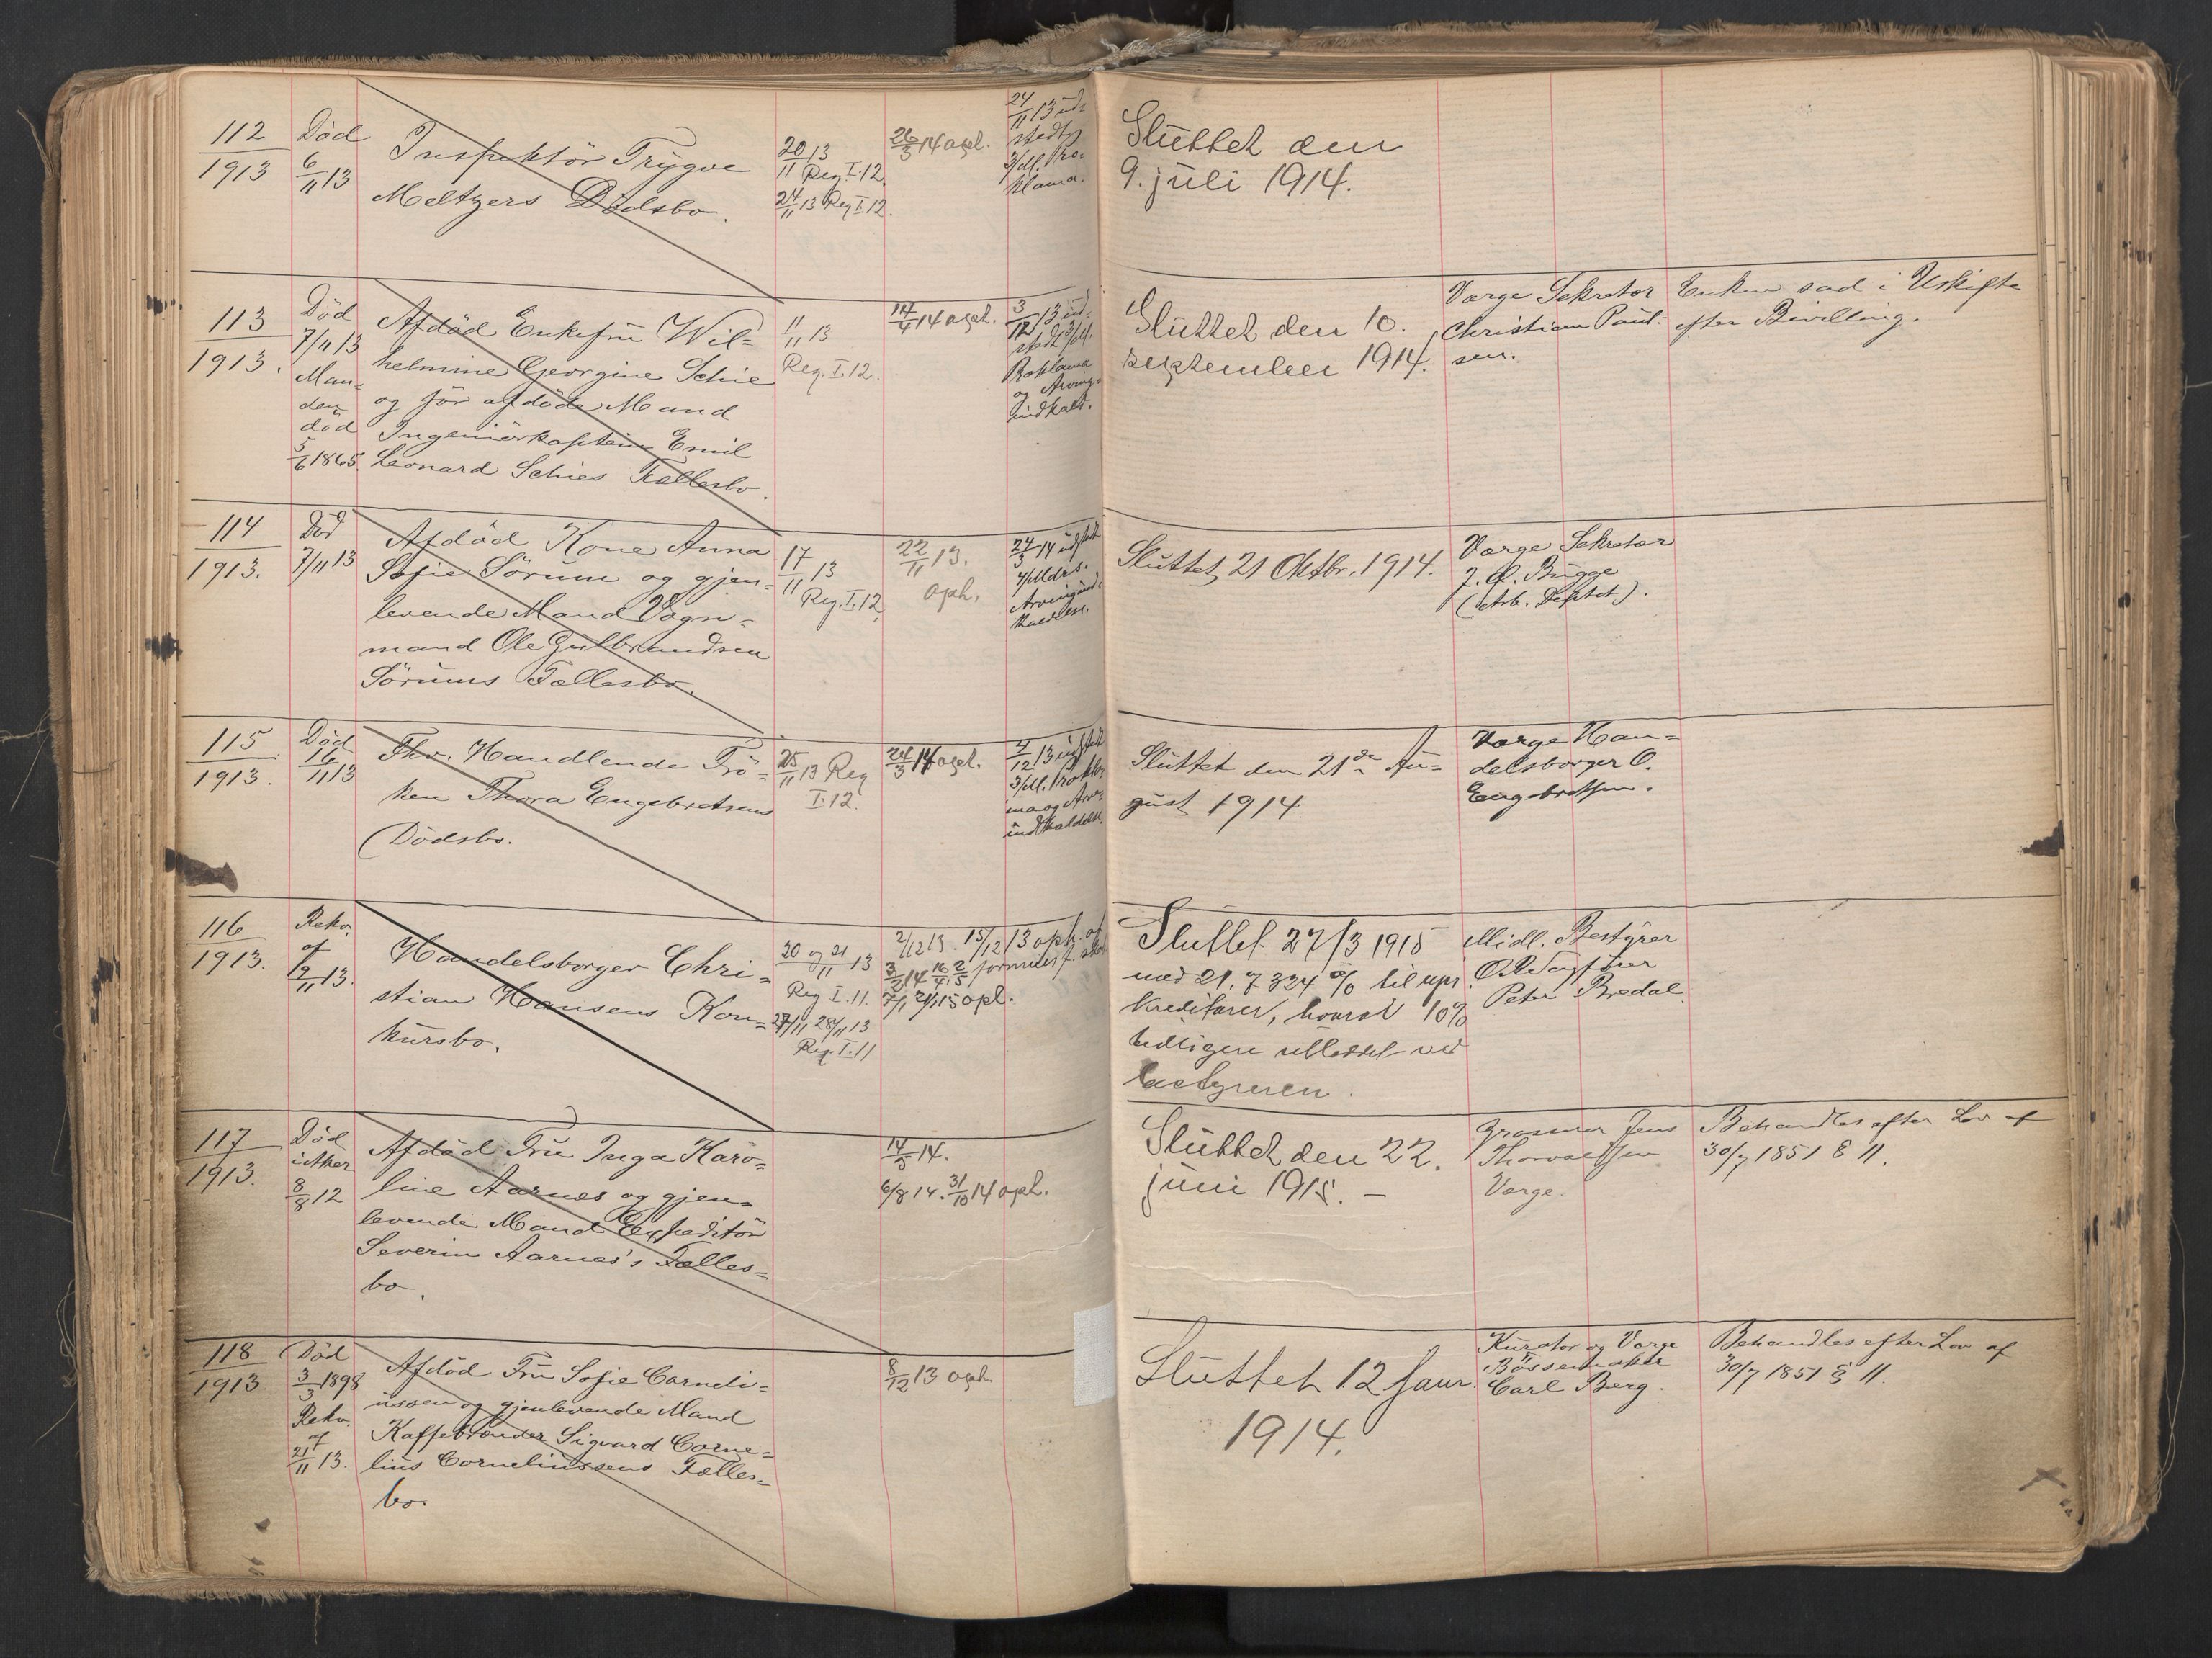 112
1913
Død
6/11 13
Inspektör Trygve
Meltzers Dödsbo.
20/11 13
Reg. I. 12.
24/11 13 Reg I 12.
26/3 14 opl.
24/11 13 ud-
stedt
3/Md. Pro-
klama.
Sluttet den
9. juli 1914.
113
1913.
Död
7/11 13
Man-
den
död
5/6 1865.
Afdöd Enkefru Wil-
helmine Georgine Schie
og för afdöde Mand
Ingeniörkaptein Emil
Leonard Schies Fællesbo.
11/11 13
Reg. I. 12.
14/4 14 opl.
3/12 13 ud-
stedt 3/M.
Proklama
og Arving-
indkald.
Sluttet den 10.
september 1914.
Værge Sekretær
Christian Paul-
sen.
Enken sad i Uskifte
efter Bevilling.
114
1913.
Död
7/11 13
Afdöd Kone Anna
Sofie Sörum og gjen-
levende Mand Vogn-
mand Ole Gulbrandsen
Sörums Fællesbo.
17/11 13
Reg. I. 12.
22/11 13.
oph.
24/3 14 udstedt
4/Mdrs.
Arvingind-
kaldelse.
Sluttet 21 Oktbr. 1914.
Værge Sekretær
Bugge
(Arb. Deptet).
115
1913.
Död
16/11 13
Fhv. Handlende Frö-
ken Thora Engebretsens
Dödsbo.
25/11 13 Reg
I. 12.
24/3 14 opl.
4/12 13 udstedt
3/M. Prokla-
ma og Arv-
indkaldelse.
Sluttet den 21de Au-
gust 1914.
Værge Han-
delsborger O.
Engebretsen.
116
1913.
Rekv.
af
19/11 13.
Handelsborger Chri-
stian Hansens Kon-
kursbo.
20 og 21/11 13
Reg I. 11.
27/11 28/11 13
Reg. I. 11
2/12 13. 15/12 13 oph. af
3/2 14 16/4 2/5
7/1 21/1 15 opl.
Sluttet 27/3 1915
med 21,7324 % til upr.
kreditorer, hvorav 10%
tidligere utloddet ved
bestyreren.
Midl. Bestyrer
O.R.Sagförer
Peter Bredal.
117
1913.
Död
8/8 12
Afdöd Fru Inga Karo-
line Aarnæs og gjen-
levende Mand Expeditör
Severin Aarnæs's Fælles-
bo.
14/5 14.
6/8 14. 31/10 14 oph.
Sluttet den 22.
juni 1915. –
Grosserer Jens
Thorvaldsen
Værge.
Behandles efter Lov af
30/7 1851 § 11.
118
1913
Död
3/3 1898
Rekv.
af
21/11 13.
Afdöd Fru Sofie Corneli-
ussen og gjenlevende Mand
Kaffebrænder Sigvard Corne-
lius Corneliussens Fælles-
bo.
8/12 13 oph.
Sluttet 12 Januar
1914.
Kurator og Værge
Bössemaker
Carl Berg.
Behandles efter Lov af
30/7 1851 § 11.